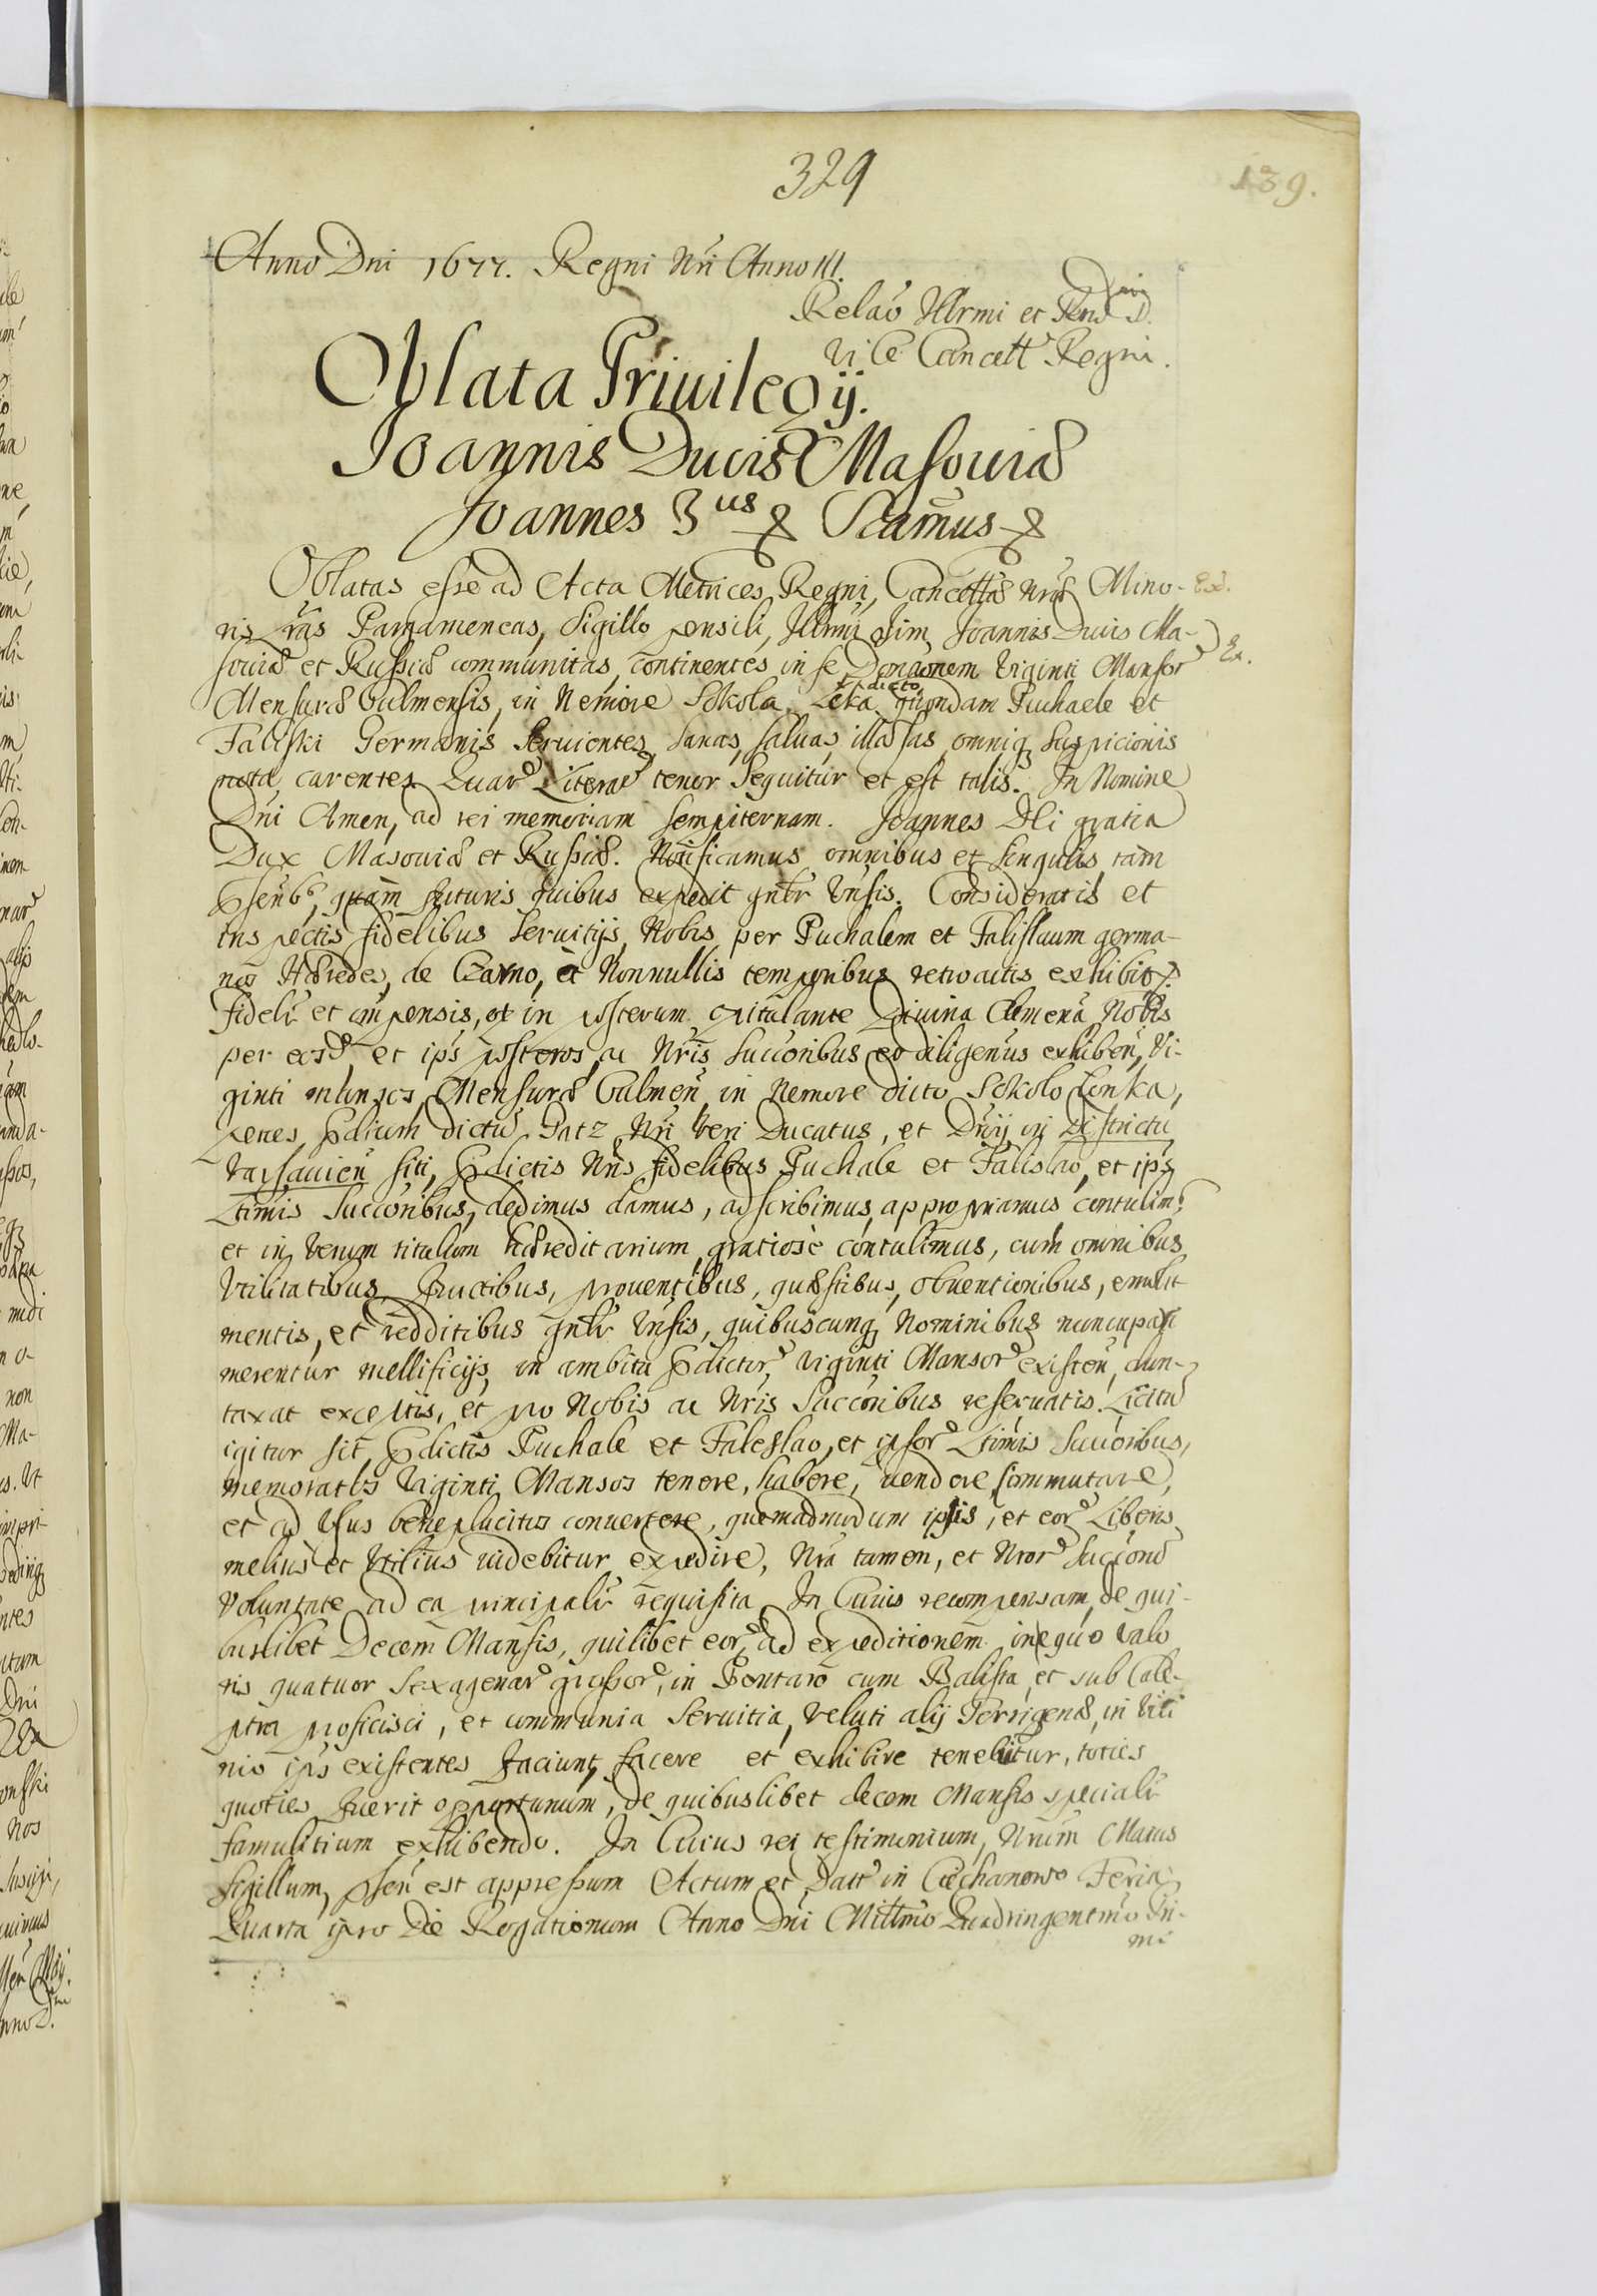 329
139.
Anno Dni 1677. Regni Nri Anno III.
Relaō Illrmi et Rnd D.
Vice Cancell Regni.
Oblata Priuilegÿ.
Joannis Ducis Masouiæ
Joannes 3us & Scāmus &
Oblatas esse ad Acta Metrices Regni, Cancellæ Nræ Mino- Ex.
ris Lras Pargameneas, Sigillo pensili, Illrmi olim Joannis Ducis Ma-
souiæ et Russiæ communitas, continentes in se Donaonem Viginti Mansor Ex.
Mensuræ Culmensis, in Nemore Sokola Leka dicto quondam Puchaele et
Faliski Germanis Seruientes, Sanas, saluas, illæsas, omniq Suspicionis
nota carentes. Quar Literar tenor Sequitur et est talis. In Nomine
Dni Amen, ad rei memoriam sempiternam. Joannes Dei gratia
Dux Masouiæ et Russiæ. Notificamus omnibus et singulis, tam
Pſenb9, quam futuris quibus expedit gnlr Vnsis. Consideratis et
inspectis fidelibus Seruitijs, Nobis per Puchalem et Falislaum germa-
nos Hæredes, de Czarno, à Nonnullis temporibus retroactis exhibit
fidelr et impensis, et in posterum opitulante Diuina Clemena Nobis
per eosd et ips posteros, ac Nris Succoribus eo diligenus exhiben, Vi-
ginti mansos, Mensuræ Culmen in Nemore dicto Sokolo Lonka,
penes Pdium dictu Gatz Nri Veri Ducatus, et Dnÿ in Districtu
Varsauien siti, Pdictis Nris fidelibus Puchale et Falislao, et ips
Ltimis Succoribus, dedimus damus, adscribimus, appropriamus contulim9
et in Verum titulum hæreditarium gratiose contulimus, cum omnibus
Vtilitatibus, fructibus, prouentibus, quæstibus, obuentionibus, emoli
mentis, et redditibus gnlr Vnsis, quibuscunq Nominibus nuncupari
merentur mellificijs, in ambitu Pdictor Viginti Mansor existen, dun-
taxat exceptis, et pro Nobis ac Nris Succoribus reseruatis. Licitū
igitur sit Pdictis Puchale et Faleslao, et ipsor Ltimis Succoribus,
memoratos Viginti Mansos tenere, habere, uendere commutare,
et ad Vsus beneplacitos conuertere, quemadmodum ipsis, et eor Liberis
melius et Vtilius uidebitur expedire, Nra tamen, et Nror Succonū
Voluntate ad ea principalr requisita. In Cuius recompensam de qui-
buslibet Decem Mansis, quilibet eor ad expeditionem in equo valo
ris quatuor Sexagenar grossor, in Pontaro cum Balista et sub Cale-
ptra proficisci, et communia Seruitia, Veluti alij Terrigenæ, in Vici
nio ips existentes faciunt, facere et exhibire tenebitur, toties
quoties fuerit opportunum, de quibuslibet decem Mansis specialr
famulitium exhibendo. In Cuius rei testimonium, Nrum Maius
sigillum, psen est appressum Actum et Datt in Ciechanow Feria
Quarta ipso Die Rogationum Anno Dni Millmo Quadringentmo Pri-
mo